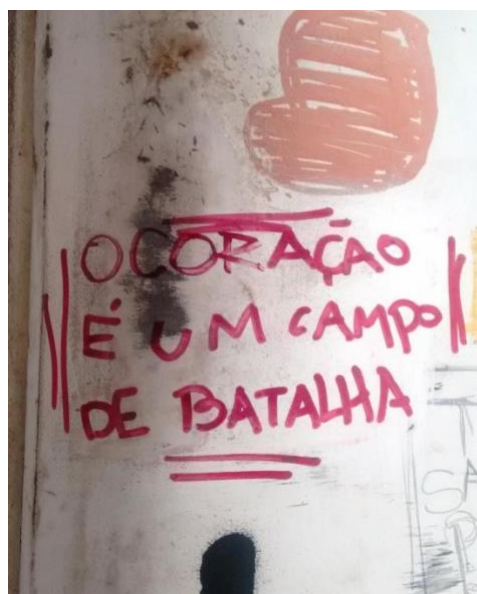 O CORAÇÃO
É UM CAMPO
DE BATALHA